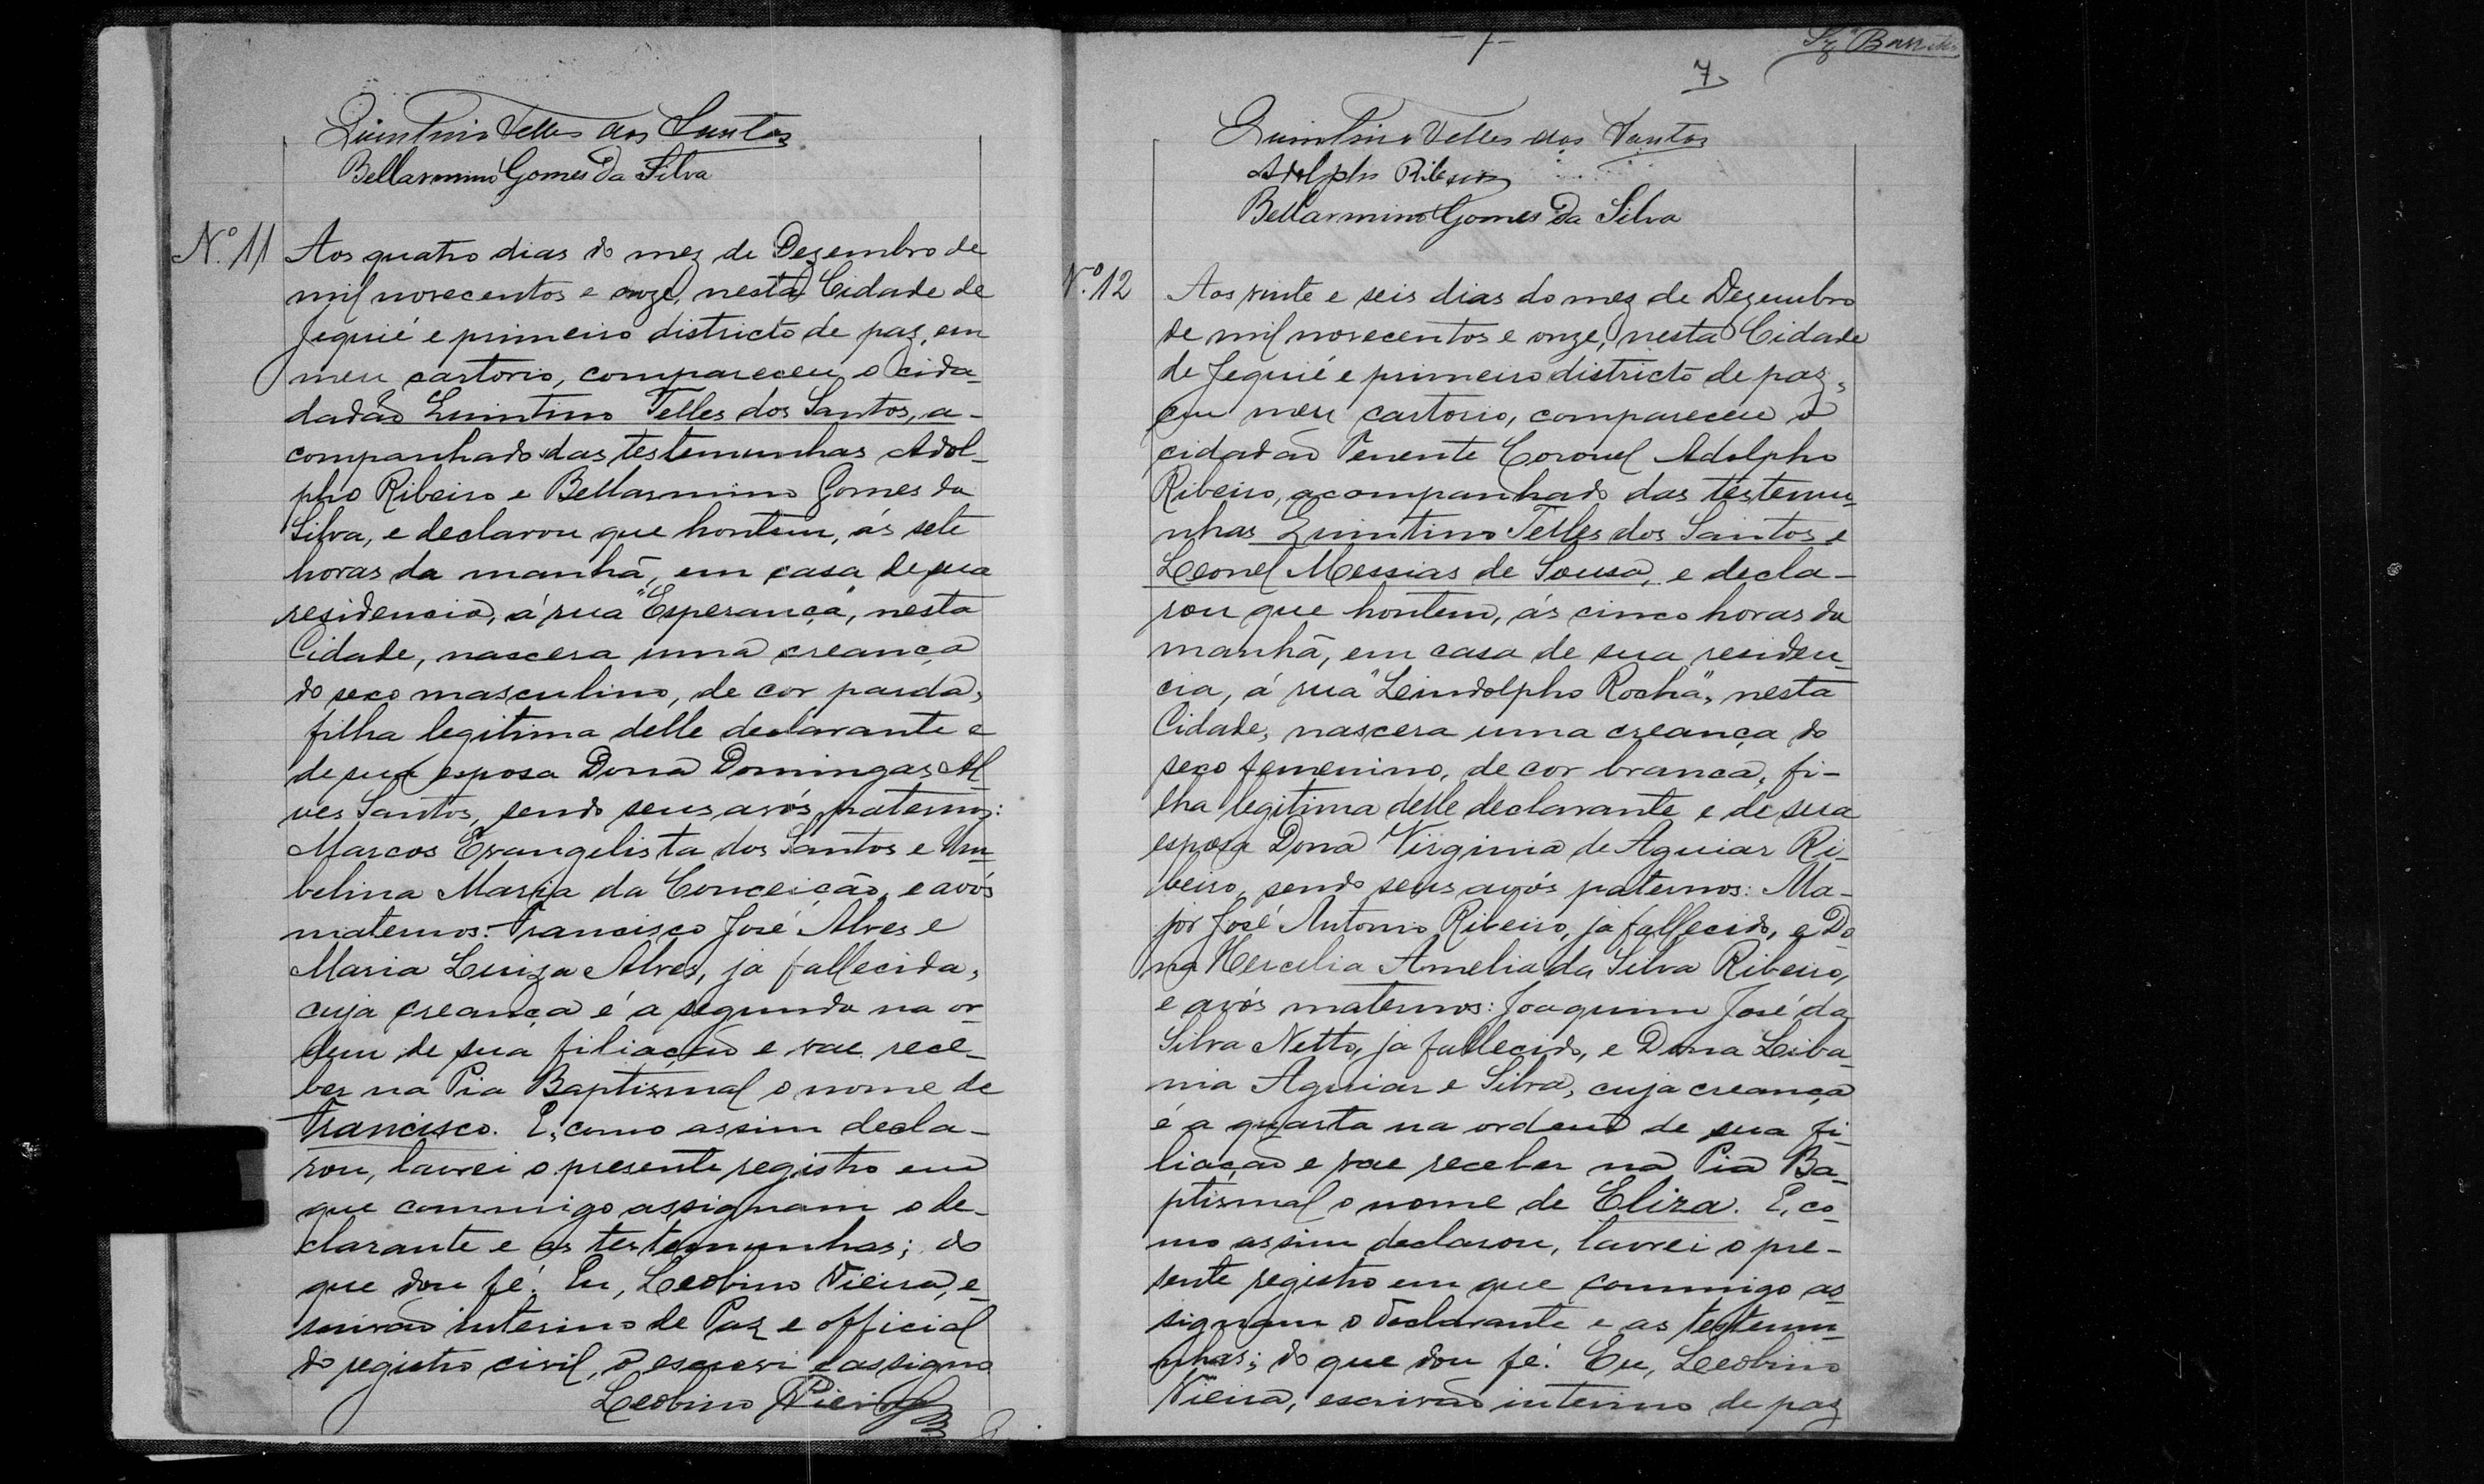 Quintino Telles dos Santos
Bellarmino Gomes da Silva
Nº 11
Aos quatro dias do mez de Dezembro de
mil novecentos e onze, nesta Cidade de
Jequié e primeiro districto de paz, em
meu cartorio, compareceu o cida-
dadão Quintino Telles dos Santos, a-
companhado das testemunhas Adol-
pho Ribeiro e Bellarmino Gomes da
Silva, e declarou que hontem, ás sete
horas da manhã, em casa de sua
residencia, á rua "Esperança", nesta
Cidade, nascera uma creança
do sexo masculino, de cor parda,
filha legitima delle declarante e
de sua esposa Dona Domingas Al-
ves Santos, sendo seus avós paternos:
Marcos Evangelista dos Santos e Um-
belina Maria da Conceição, e avós
maternos: Francisco José Alves e
Maria Luiza Alves, ja fallecida,
cuja creança é a segunda na or-
dem de sua filiação e vae rece-
ber na Pia Baptismal o nome de
Francisco. E, como assim decla-
rou, lavrei o presente registro em
que commigo assignam o de-
clarante e as testemunhas; do
que dou fé. Eu, Leobino Vieira, e-
scrivão interino de Paz e official
do registro civil, o escrevi e assigno
Leobino Vieira
7
Quintino Telles dos Santos
Adolpho Ribeiro
Bellarmino Gomes da Silva
Nº 12
Aos vinte e seis dias do mez de Dezembro
de mil novecentos e onze, nesta Cidade
de Jequié e primeiro districto de paz,
em meu cartorio, compareceu o
cidadão Tenente Coronel Adolpho
Ribeiro, acompanhado das testemu-
nhas Quintino Telles dos Santos e
Leonel Messias de Sousa, e decla-
rou que hontem, ás cinco horas da
manhã, em casa de sua residen-
cia, á rua "Leindolpho Rocha", nesta
Cidade, nascera uma creança do
sexo femenino, de cor branca, fi-
lha legitima delle declarante e de sua
esposa Dona Virginia de Aguiar Ri-
beiro, sendo seus avós paternos: Ma-
jor José Antonio Ribeiro, ja fallecido, e Do-
na Hercilia Amelia da Silva Ribeiro,
e avós maternos: Joaquim José da
Silva Netto, ja fallecido, e Dona Leiba-
nia Aguiar e Silva, cuja creança
é a quarta na ordem de sua fi-
liação e vae receber na Pia Ba-
ptismal o nome de Eliza. E, co-
mo assim declarou, lavrei o pre-
sente registro em que commigo as-
signam o declarante e as testemu-
nhas; do que dou fé. Eu, Leobino
Vieira, escrivão interino de paz